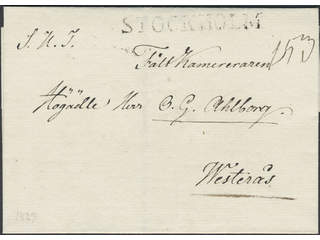 STOCKHOLM
S. H. T.
Fält Kamereraren
Högädle Herr O. G. Ahlborg.
Westerås
1829